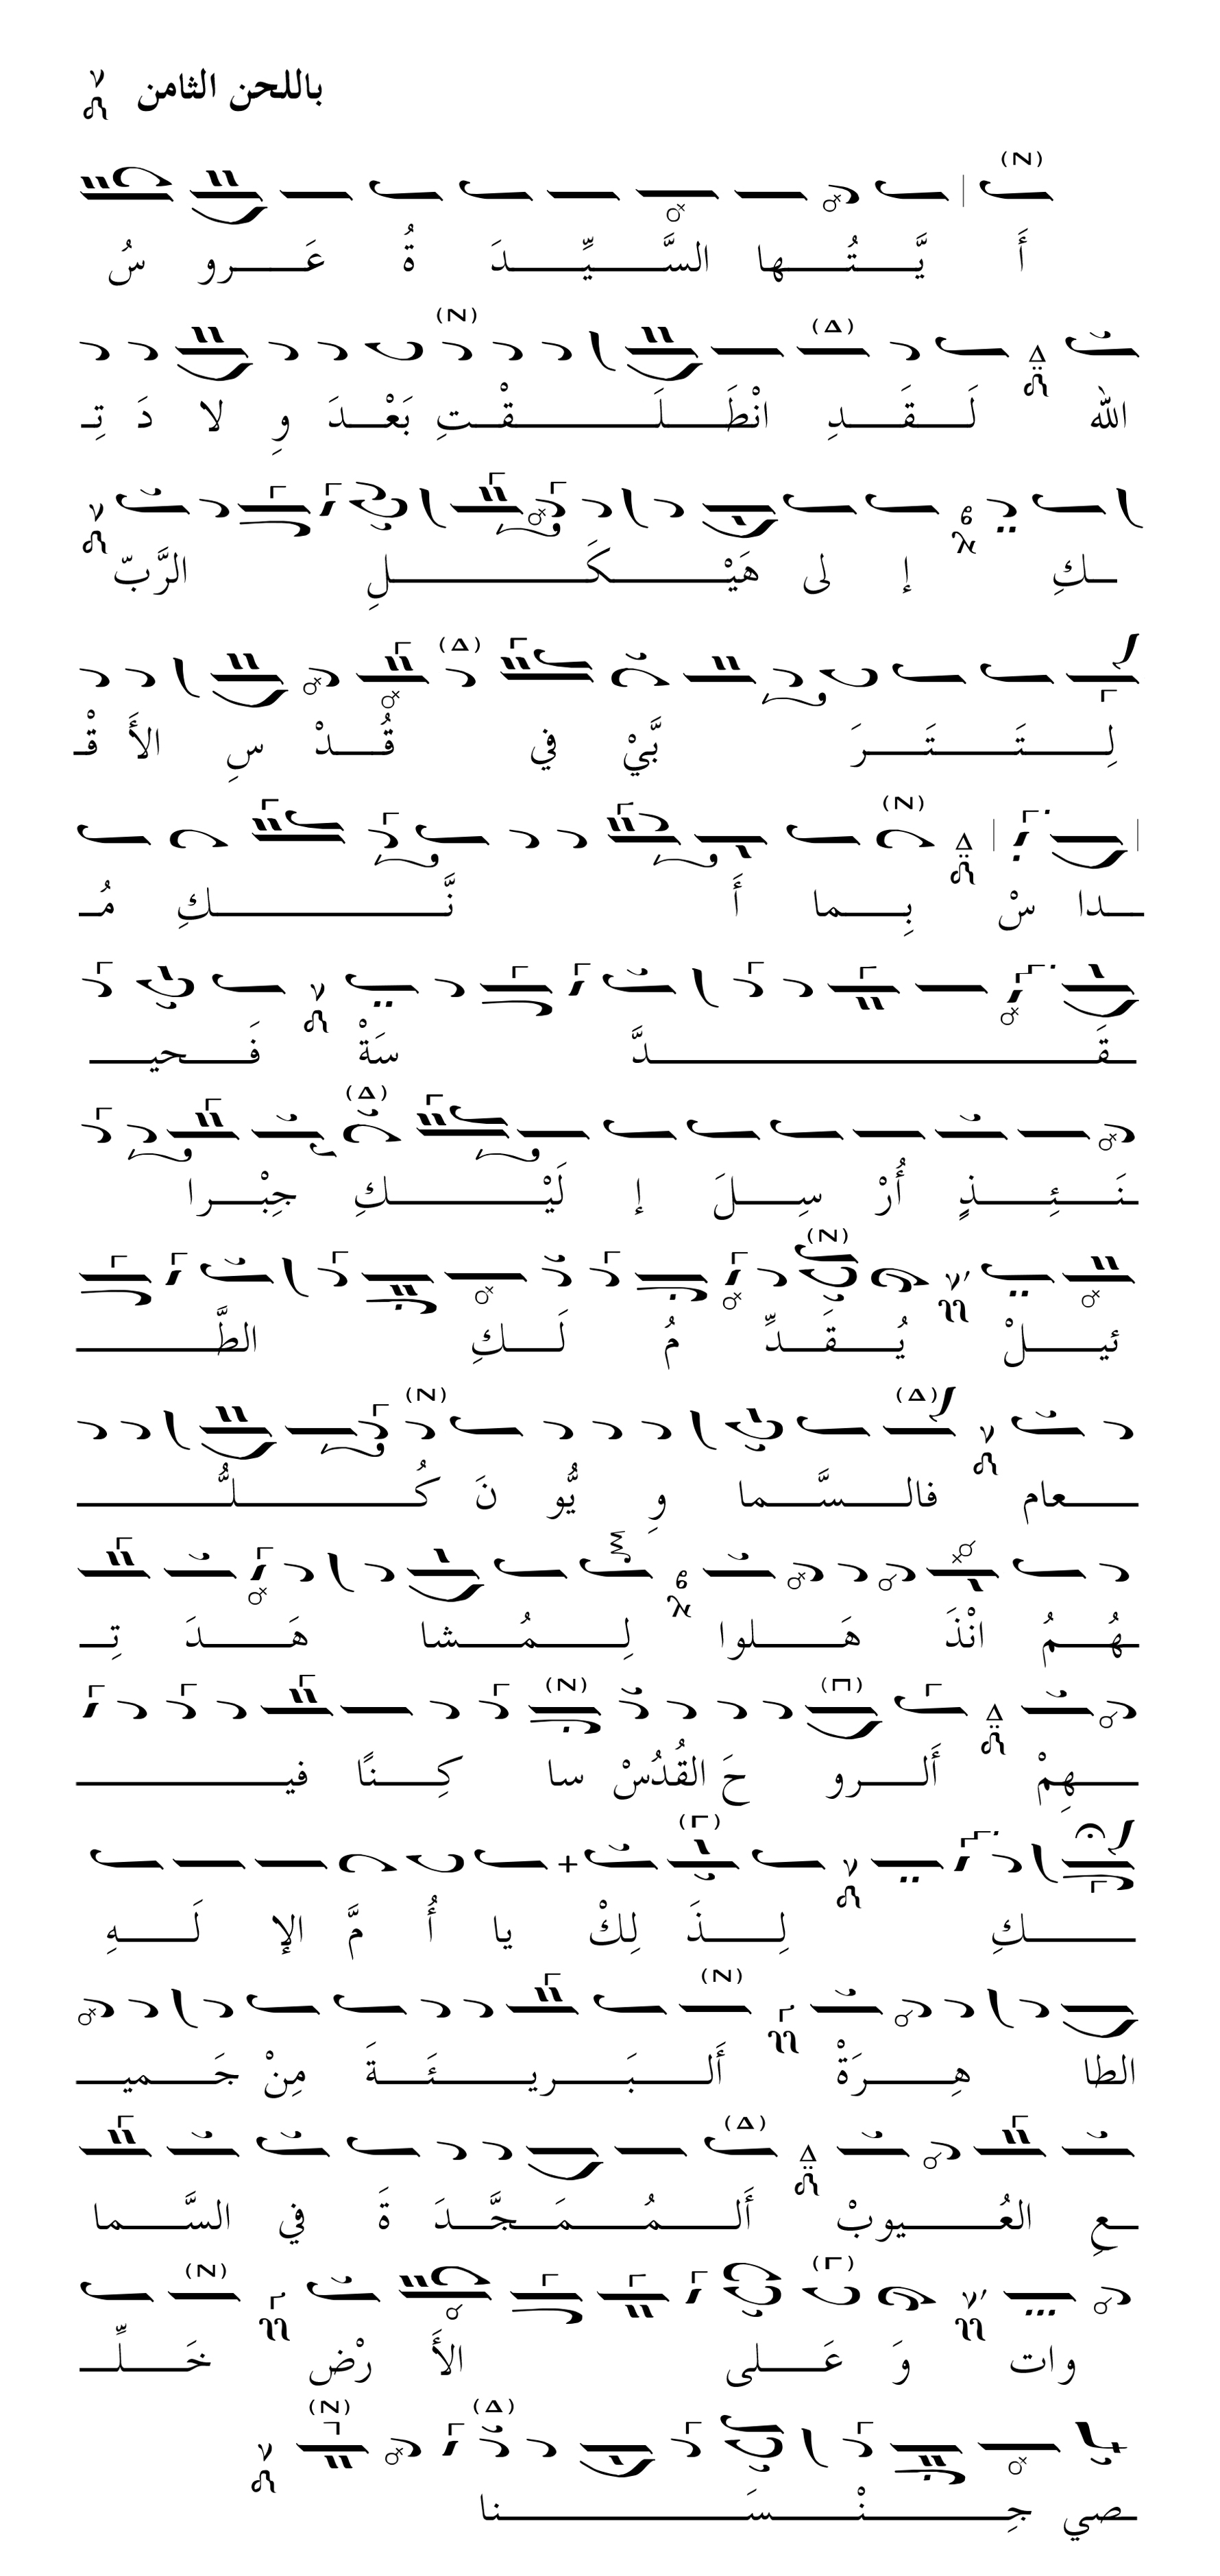 باللحن الثامن
أَ يَّـتُـها السَّـيِّـدَ ةُ عَـرو سُ
الله لَـقَـدِ انْطَـلَـقْـتِ بَعْـدَ وِ لا دَ تِـ
ـكِ إ لى هَيْـكَـلِ الرَّبّ
لِـتَـتَـرَ بَّيْ في قُـدْ سِ الأَ قْـ
ـدا سْ بِـما أَ نَّـكِ مُـ
ـقَـدَّ سَةْ فَـحيـ
ـنَـئِـذٍ أُرْ سِـلَ إ لَيْـكِ جِبْـرا
ئيـلْ يُـقَـدِّ مُ لَـكِ الطَّـ
ـعام فالـسَّـما وِ يُّو نَ كُـلُّـ
ـهُـمُ انْذَ هَـلوا لِـمُـشا هَـدَ تِـ
ـهِمْ أَلـرو حَ القُدُسْ سا كِـنًا فيـ
ـكِ لِـذَ لِكْ يا أُ مَّ الإ لَـهِ
الطا هِـرَةْ أَلـبَـريـئَـةَ مِنْ جَـميـ
ـعِ العُـيوبْ أَلـمُـمَـجَّـدَ ةَ في السَّـما
وات وَ عَـلى الأَ رْض خَـلِّـ
ـصي جِـنْـسَـنا